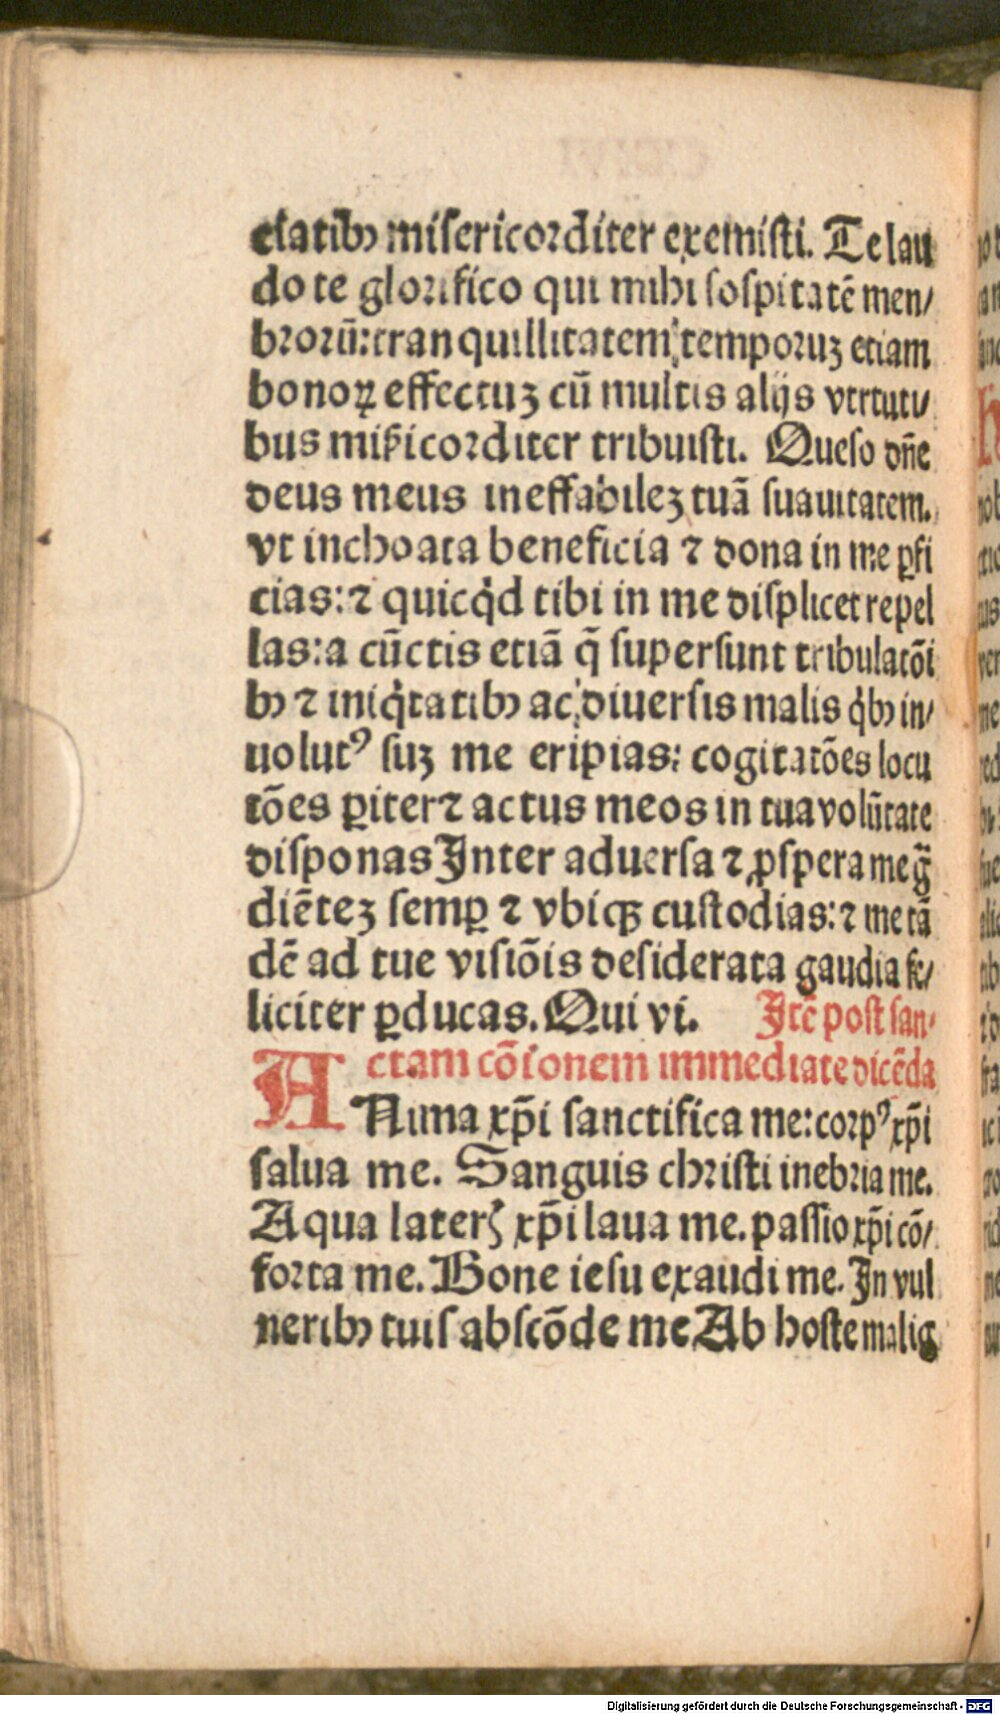 ctatibꝰ misericorditer exemisti. Te lau
do te glorifico qui mihi sospitatē men/
brorū: tranquillitatem temporuꝫ etiam
bonoꝝ effectuꝫ cū multis alijs virtuti/
bus miẜicorditer tribuisti. Queso dn̄e
deus meus ineffabileꝫ tuā suauitatem.
vt inchoata beneficia ⁊ dona in me ꝑfi
cias: ⁊ quicqͥd tibi in me displicet repel
las: a cūctis etiā q̄ supersunt tribulatōi
bꝰ ⁊ iniqͥtatibꝰ ac diuersis malis qͥbꝰ in/
uolutꝰ suꝫ me eripias: cogitatōes locu
tōes ꝑiter ⁊ actus meos in tua volūtate
disponas Inter aduersa ⁊ ꝓspera me g̃
diēteꝫ semꝑ ⁊ vbiqꝫ custodias: ⁊ me tā
dē ad tue visiōis desiderata gaudia fe/
liciter ꝑducas. Qui vi. Itē post san/
ctam cōionem immediate dicēda
ANima xp̄i sanctifica me: corpꝰ xp̄i
salua me. Sanguis christi inebria me.
Aqua laterꝭ xp̄i laua me. passio xp̄i cō/
forta me. Bone iesu exaudi me. In vul
neribꝰ tuis abscōde me Ab hoste malig
Digitalisierung gefördert durch die Deutsche Forschungsgemeinschaft - DFG